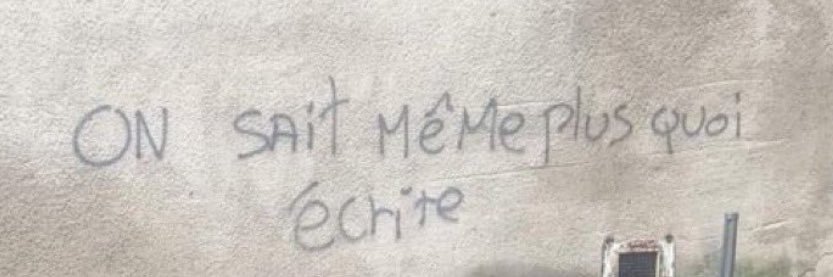 ON SAit MêMe plus quoi
écrire